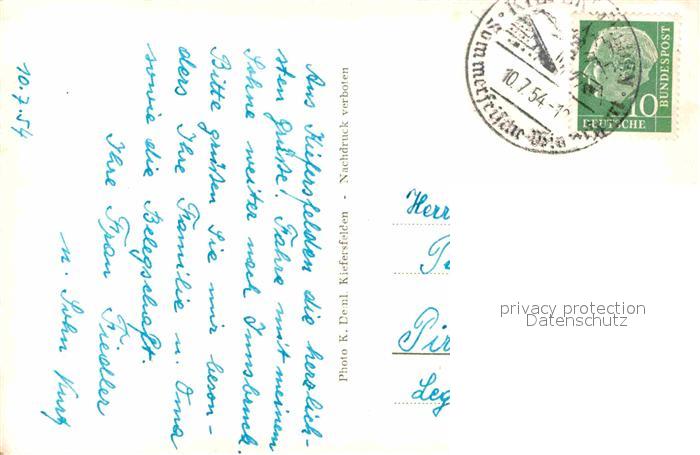 10.7.54
Aus Kiefersfelden die herzlich-
sten Grüße! Fahre mit meinem
Sohne weiter nach Innsbruck
Bitte grüßen Sie mir beson-
ders Ihre Familie u. Oma
sowie die Belegschaft.
Ihre Frau Friedler
u. Sohn Kurt
Photo K. Deml. Kiefersfelden - Nachdruck verboten
10.7.54-1
Sommerfrische
10
DEUTSCHE
BUNDESPOST
Herr
Pir
Leg
privacy protection
Datenschutz